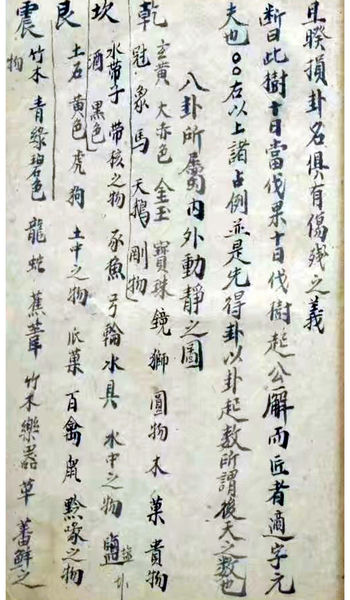 且睽損卦名俱有傷殘之義
断曰此樹十日當伐果十日伐樹起公廨而匠者適字元
夫也〇〇右以上諸占例並是先得卦以卦起数所謂後天之数也
八卦所屬内外動靜之圖
乾 玄黄 大赤色 金玉 寶珠 鏡 獅 圓物 木菓 貴物
冠 象 馬 天鵝 剛物
坎 水帶子 帶核之物 豕 魚 弓輪 水具 水中之物 鹽
酒 黑色
艮 土石 黄色 虎 狗 土中之物 瓜菓 百禽 鼠 黔喙之物
震 竹木 青綠碧色 龍 蛇 蕉葦 竹木樂器 草 蕃鮮之
物